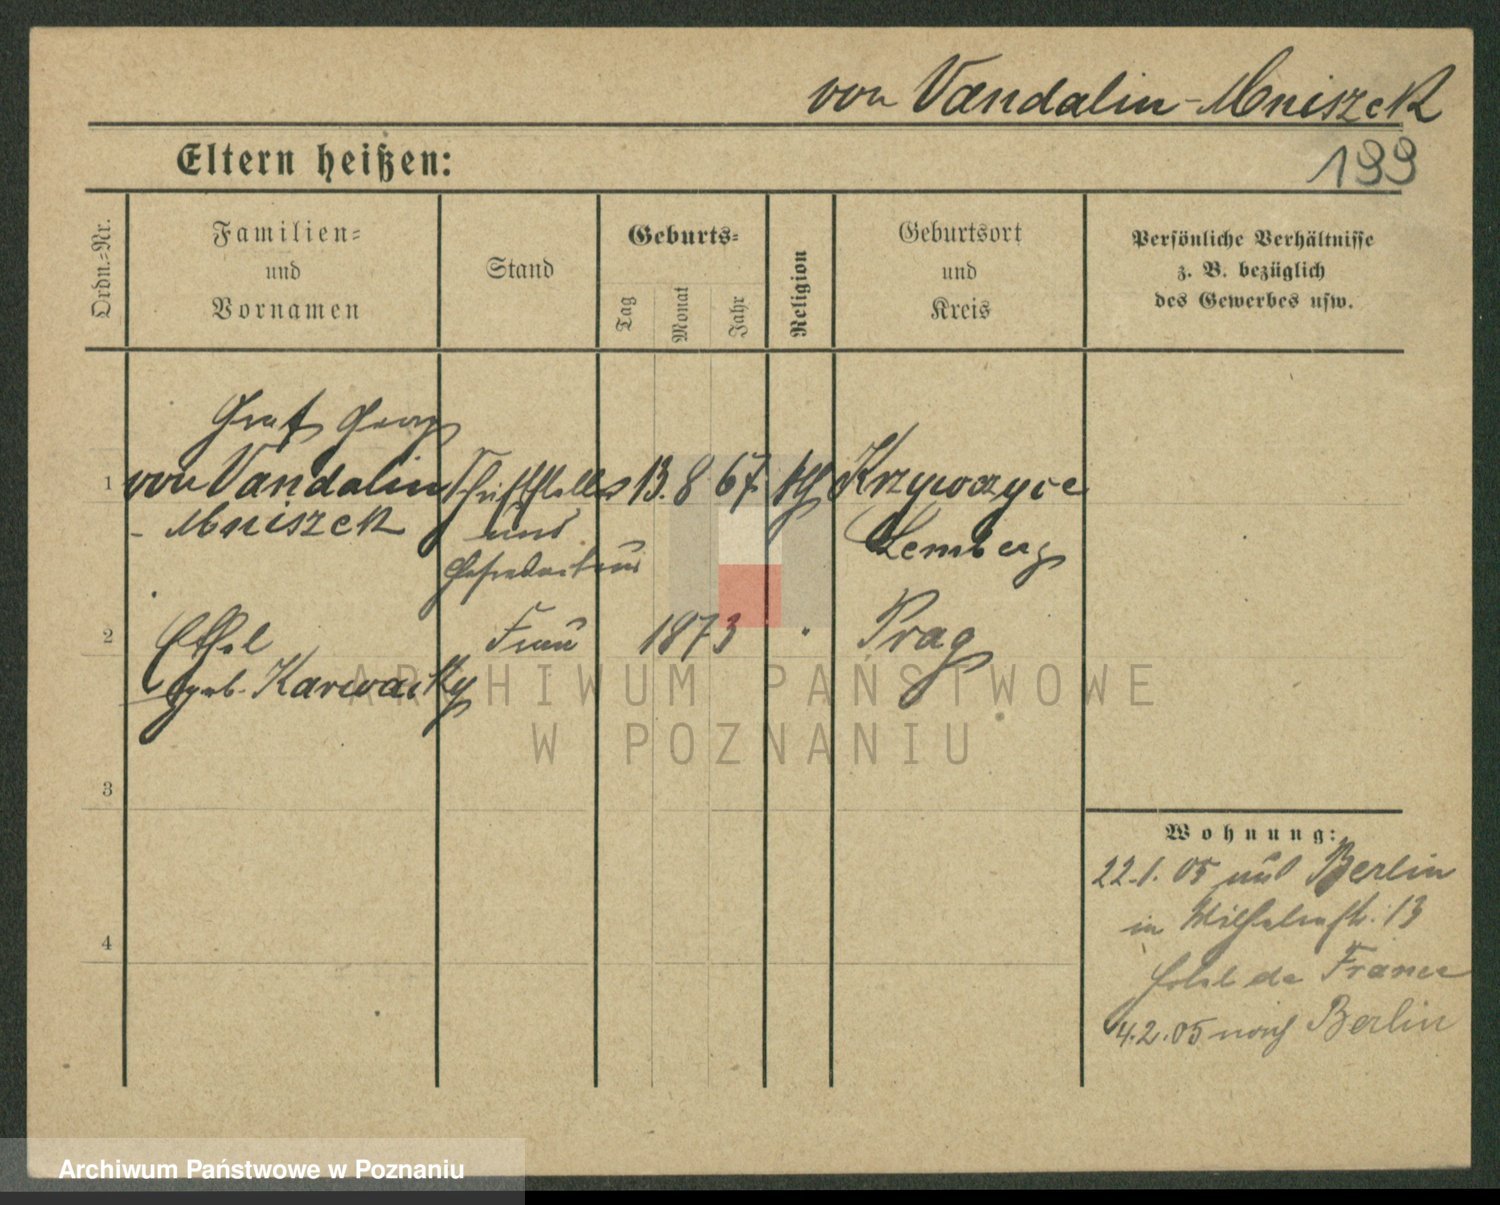 von Vandalin-Mniszek
Eltern heißen:
199
Ordn.-Nr.
Familien-
und
Vornamen
Stand
Geburts-
Tag
Monat
Jahr
Religion
Geburtsort
und
Kreis
Persönliche Verhältnisse
z. B. bezüglich
des Gewerbes usw.
Graf Georg
1 von Vandalin Schriftsteller 13. 8 67. kth Krzywczyce
- Mniszek und Lemberg
Chefredakteur
2 Ethel Frau 1873 Prag
geb. Karwacky
3
4
Wohnung:
22.1.05 aus Berlin
in Wilhelmstr. 13
Hotel de France
4.2.05 nach Berlin
ARCHIWUM PAŃSTWOWE
W POZNANIU
Archiwum Państwowe w Poznaniu